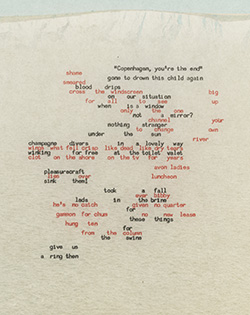 "Copenhagen, you're the end"
shame game to drown this child again
smeared
blood drips
cross the windscreen big
on our situation
for all to see up
when is a window
only the one
not a mirror?
channel your
nothing stronger
to change own
under the sun
river
champagne divers in a lovely way
wings what fall crisp like dead like dry tears
winking for free at the toilet valet
clot on the shore on the tv for years
avon ladies
pleasurecraft
lies over luncheon
sink them!
took a fall
ever bibby
lads in the brine
he's no catch given no quarter
for
gammon for chum no new lesson
these things
hung ten
for
from the column
the swine
give us
a ring then